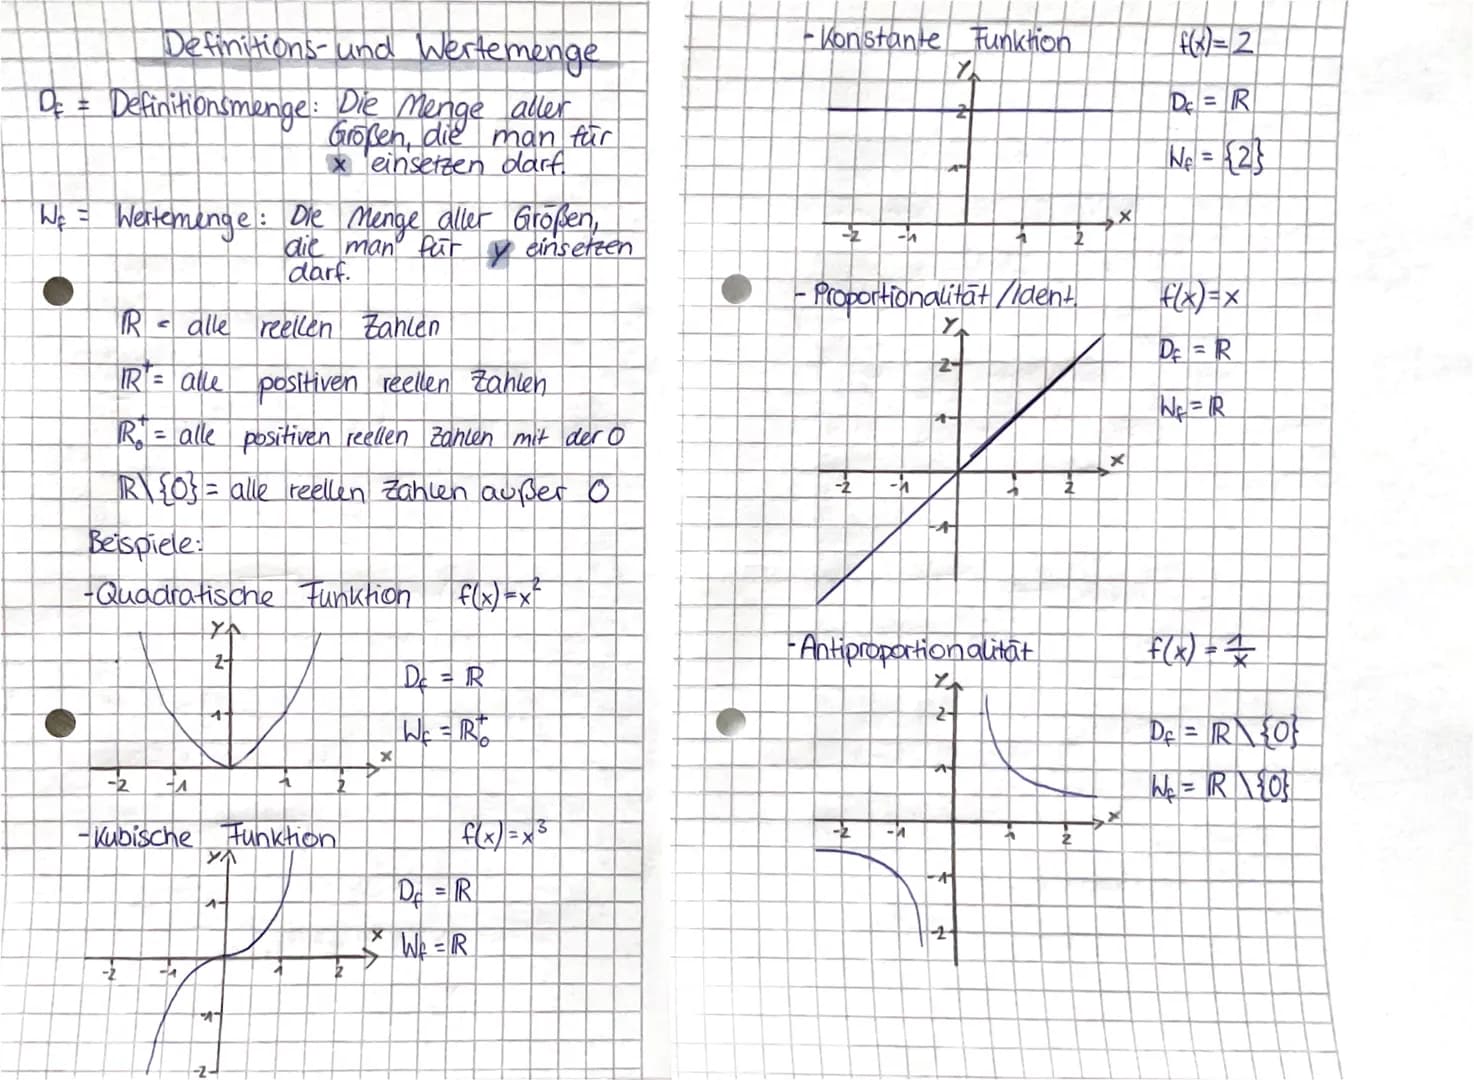 Definitions- und Wertemenge
Df = Definitionsmenge: Die Menge aller
Größen, die man für
x einsetzen darf.
Wf = Wertemenge: Die Menge aller Größen,
die man für y einsetzen
darf.
ℝ = alle reellen Zahlen
ℝ⁺ = alle positiven reellen Zahlen
ℝ₀⁺ = alle positiven reellen Zahlen mit der 0
ℝ\{0} = alle reellen Zahlen außer 0
Beispiele:
-Quadratische Funktion f(x)=x²
y
2
1
-2 -1 1 2 x
Df = ℝ
Wf = ℝ₀⁺
-Kubische Funktion f(x)=x³
y
1
-2 -1 1 2 x
-1
-2
Df = ℝ
Wf = ℝ
- Konstante Funktion f(x)=2
y
2
1
-2 -1 1 2 x
Df = ℝ
Wf = {2}
- Proportionalität /Ident. f(x)=x
y
2
1
-2 -1 1 2 x
-1
Df = ℝ
Wf = ℝ
-Antiproportionalität f(x) = 1/x
y
2
1
-2 -1 1 2 x
-1
-2
Df = ℝ\{0}
Wf = ℝ\{0}